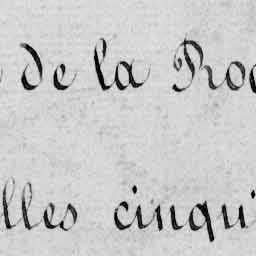 de la Roc
lles cinqu